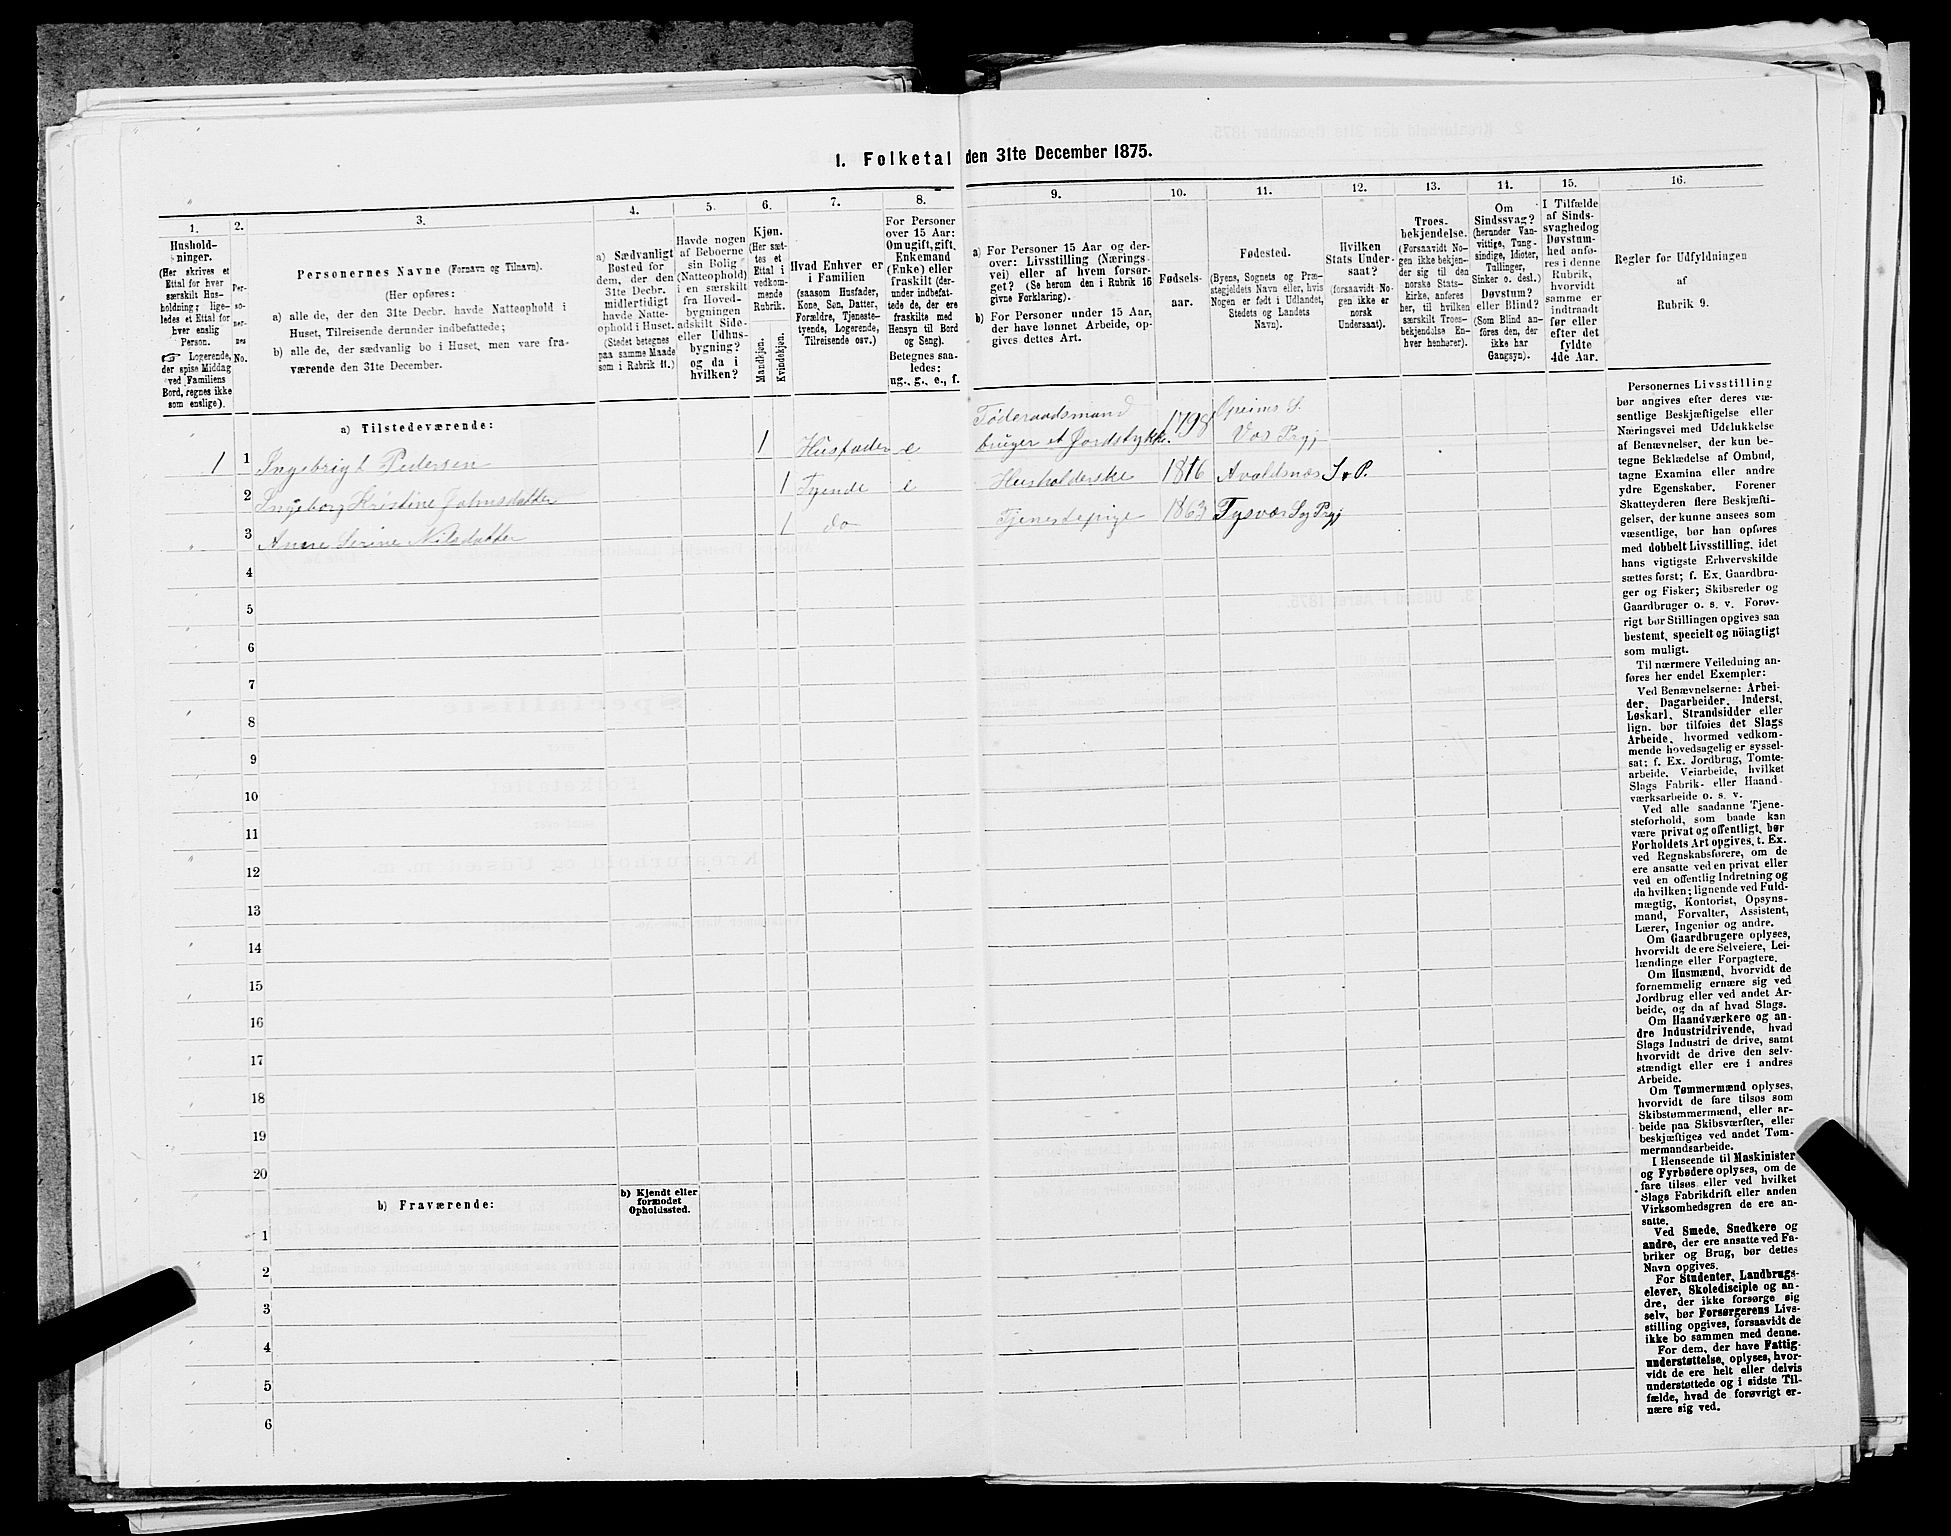 1. Folketal den 31te December 1875.
1.
Hushold-
ninger.
(Her skrives et
Ettal for hver
særskilt Hus-
holdning; lige-
ledes et Ettal for
hver enslig
Person.
☞ Logerende,
der spise Middag
ved Familiens
Bord, regnes ikke
som enslige).
2.
Per-
so-
ner-
nes
No.
3.
Personernes Navne (Fornavn og Tilnavn).
(Her opføres:
a) alle de, der den 31te Decbr. havde Natteophold i
Huset, Tilreisende derunder indbefattede;
b) alle de, der sædvanlig bo i Huset, men vare fra-
værende den 31te December.
4.
a) Sædvanligt
Bosted for
dem, der den
31te Decbr.
midlertidigt
havde Natte-
ophold i Huset.
(Stedet betegnes
paa samme Maade
som i Rubrik 11.)
5.
Havde nogen
af Beboerne
sin Bolig
(Natteophold)
i en særskilt
fra Hoved-
bygningen
adskilt Side-
eller Udhus-
bygning?
og da i
hvilken?
6.
Kjøn.
(Her sæt-
tes et
Ettal i
vedkom-
mende
Rubrik.
Mandkjøn.
Kvindekjøn.
7.
Hvad Enhver er
i Familien
(saasom Husfader,
Kone, Søn, Datter,
Forældre, Tjeneste-
tyende, Logerende,
Tilreisende osv.)
8.
For Personer
over 15 Aar:
Om ugift, gift,
Enkemand
(Enke) eller
fraskilt (der-
under indbefat-
tede de, der ere
fraskilte med
Hensyn til Bord
og Seng).
Betegnes saa-
ledes:
ug., g., e., f.
9.
a) For Personer 15 Aar og der-
over: Livsstilling (Nærings
vei) eller af hvem forsør-
get? (Se herom den i Rubrik 16
givne Forklaring).
b) For Personer under 15 Aar,
der have lønnet Arbeide, op-
gives dettes Art.
10.
Fødsels-
aar.
11.
Fødested.
(Byens, Sognets og Præ-
stegjeldets Navn eller, hvis
Nogen er født i Udlandet,
Stedets og Landets
Navn).
12.
Hvilken
Stats Under-
saat?
(forsaavidt No-
gen ikke er
norsk
Undersaat).
13.
Troes-
bekjendelse.
(Forsaavidt No-
gen ikke bekjen-
der sig til den
norske Stats-
kirke, anføres
her, til hvilken
særskilt Troes-
bekjendelse En-
hver henhører).
14.
Om
Sindssvag?
(herunder Van-
vittige, Tung-
sindige, Idioter,
Tullinger,
Sinker o. desl.)
Døvstum?
eller Blind?
(Som Blind an-
føres den, der
ikke har
Gangsyn).
15.
I Tilfælde
af Sinds-
svaghed og
Døvstum-
hed anfø-
res i denne
Rubrik,
hvorvidt
samme er
indtraadt
før eller
efter det
fyldte
4de Aar.
16.
Regler for Udfyldningen
af
Rubrik 9.
a) Tilstedeværende:
1 1 Ingebrigt Pedersen 1 Husfader e Føderaadsmand
bruger et Jordstykke. 1798 Opeims S.
Vos Prgj
2 Ingeborg Kristine Johnsdatter 1 Tyende e Husholderske 1816 Avaldsnæs S. P.
3 Anne Serine Nilsdatter 1 do Tjenestepige 1863 Tysvær Sog Prgj
4
5
6
7
8
9
10
11
12
13
14
15
16
17
18
19
20
b) Fraværende:
b) Kjendt eller
formodet
Opholdssted.
1
2
3
4
5
6
Personernes Livsstilling
bør angives efter deres væ-
sentlige Beskjæftigelse eller
Næringsvei med Udelukkelse
af Benævnelser, der kun be-
tegne Beklædelse af Ombud,
tagne Examina eller andre
ydre Egenskaber. Forener
Skatteyderen flere Beskjæfti-
gelser, der kunne ansees som
væsentlige, bør han opføres
med dobbelt Livsstilling, idet
hans vigtigste Erhvervskilde
sættes først; f. Ex. Gaardbru-
ger og Fisker; Skibsreder og
Gaardbruger o. s. v. Forøv-
rigt bør Stillingen opgives saa
bestemt, specielt og nöiagtigt
som muligt.
Til nærmere Veiledning an-
føres her endel Exempler:
Ved Benævnelserne: Arbei-
der, Dagarbeider, Inderst,
Løskarl, Strandsidder eller
lign. bør tilføies det Slags
Arbeide, hvormed vedkom-
mende hovedsagelig er syssel-
sat; f. Ex. Jordbrug, Tomte-
arbeide, Veiarbeide, hvilket
Slags Fabrik- eller Haand-
værksarbeide o. s. v.
Ved alle saadanne Tjene-
steforhold, som baade kan
være privat og offentligt, bør
Forholdets Art opgives, t. Ex.
ved Regnskabsførere, om de
ere ansatte ved en privat eller
ved en offentlig Indretning og
da hvilken; lignende ved Fuld-
mægtig, Kontorist, Opsyns-
mand, Forvalter, Assistent,
Lærer, Ingeniør og andre.
Om Gaardbrugere oplyses,
hvorvidt de ere Selveiere, Lei-
lændinge eller Forpagtere.
Om Husmænd, hvorvidt de
fornemmelig ernære sig ved
Jordbrug eller ved andet Ar-
beide, og da af hvad Slags.
Om Haandværkere og an-
dre Industridrivende, hvad
Slags Industri de drive, samt
hvorvidt de drive den selv-
stændigt eller ere i andres
Arbeide.
Om Tømmermænd oplyses,
hvorvidt de fare tilsøs som
Skibstømmermænd, eller ar-
beide paa Skibsværfter, eller
beskjæftiges ved andet Tøm-
mermandsarbeide.
I Henseende til Maskinister
og Fyrbødere oplyses, om de
fare tilsøs eller ved hvilket
Slags Fabrikdrift eller anden
Virksomhedsgren de ere an-
satte.
Ved Smede, Snedkere og
andre, der ere ansatte ved Fa-
briker og Brug, bør dettes
Navn opgives.
For Studenter, Landbrugs-
elever, Skoledisciple og an-
dre, der ikke forsørge sig
selv, bør Forsørgerens Livs-
stilling opgives, forsaavidt de
ikke bo sammen med denne.
For dem, der have Fattig-
understøttelse, oplyses, hvor-
vidt de ere helt eller delvis
understøttede og i sidste Til-
fælde, hvad de forøvrigt er-
nære sig ved.